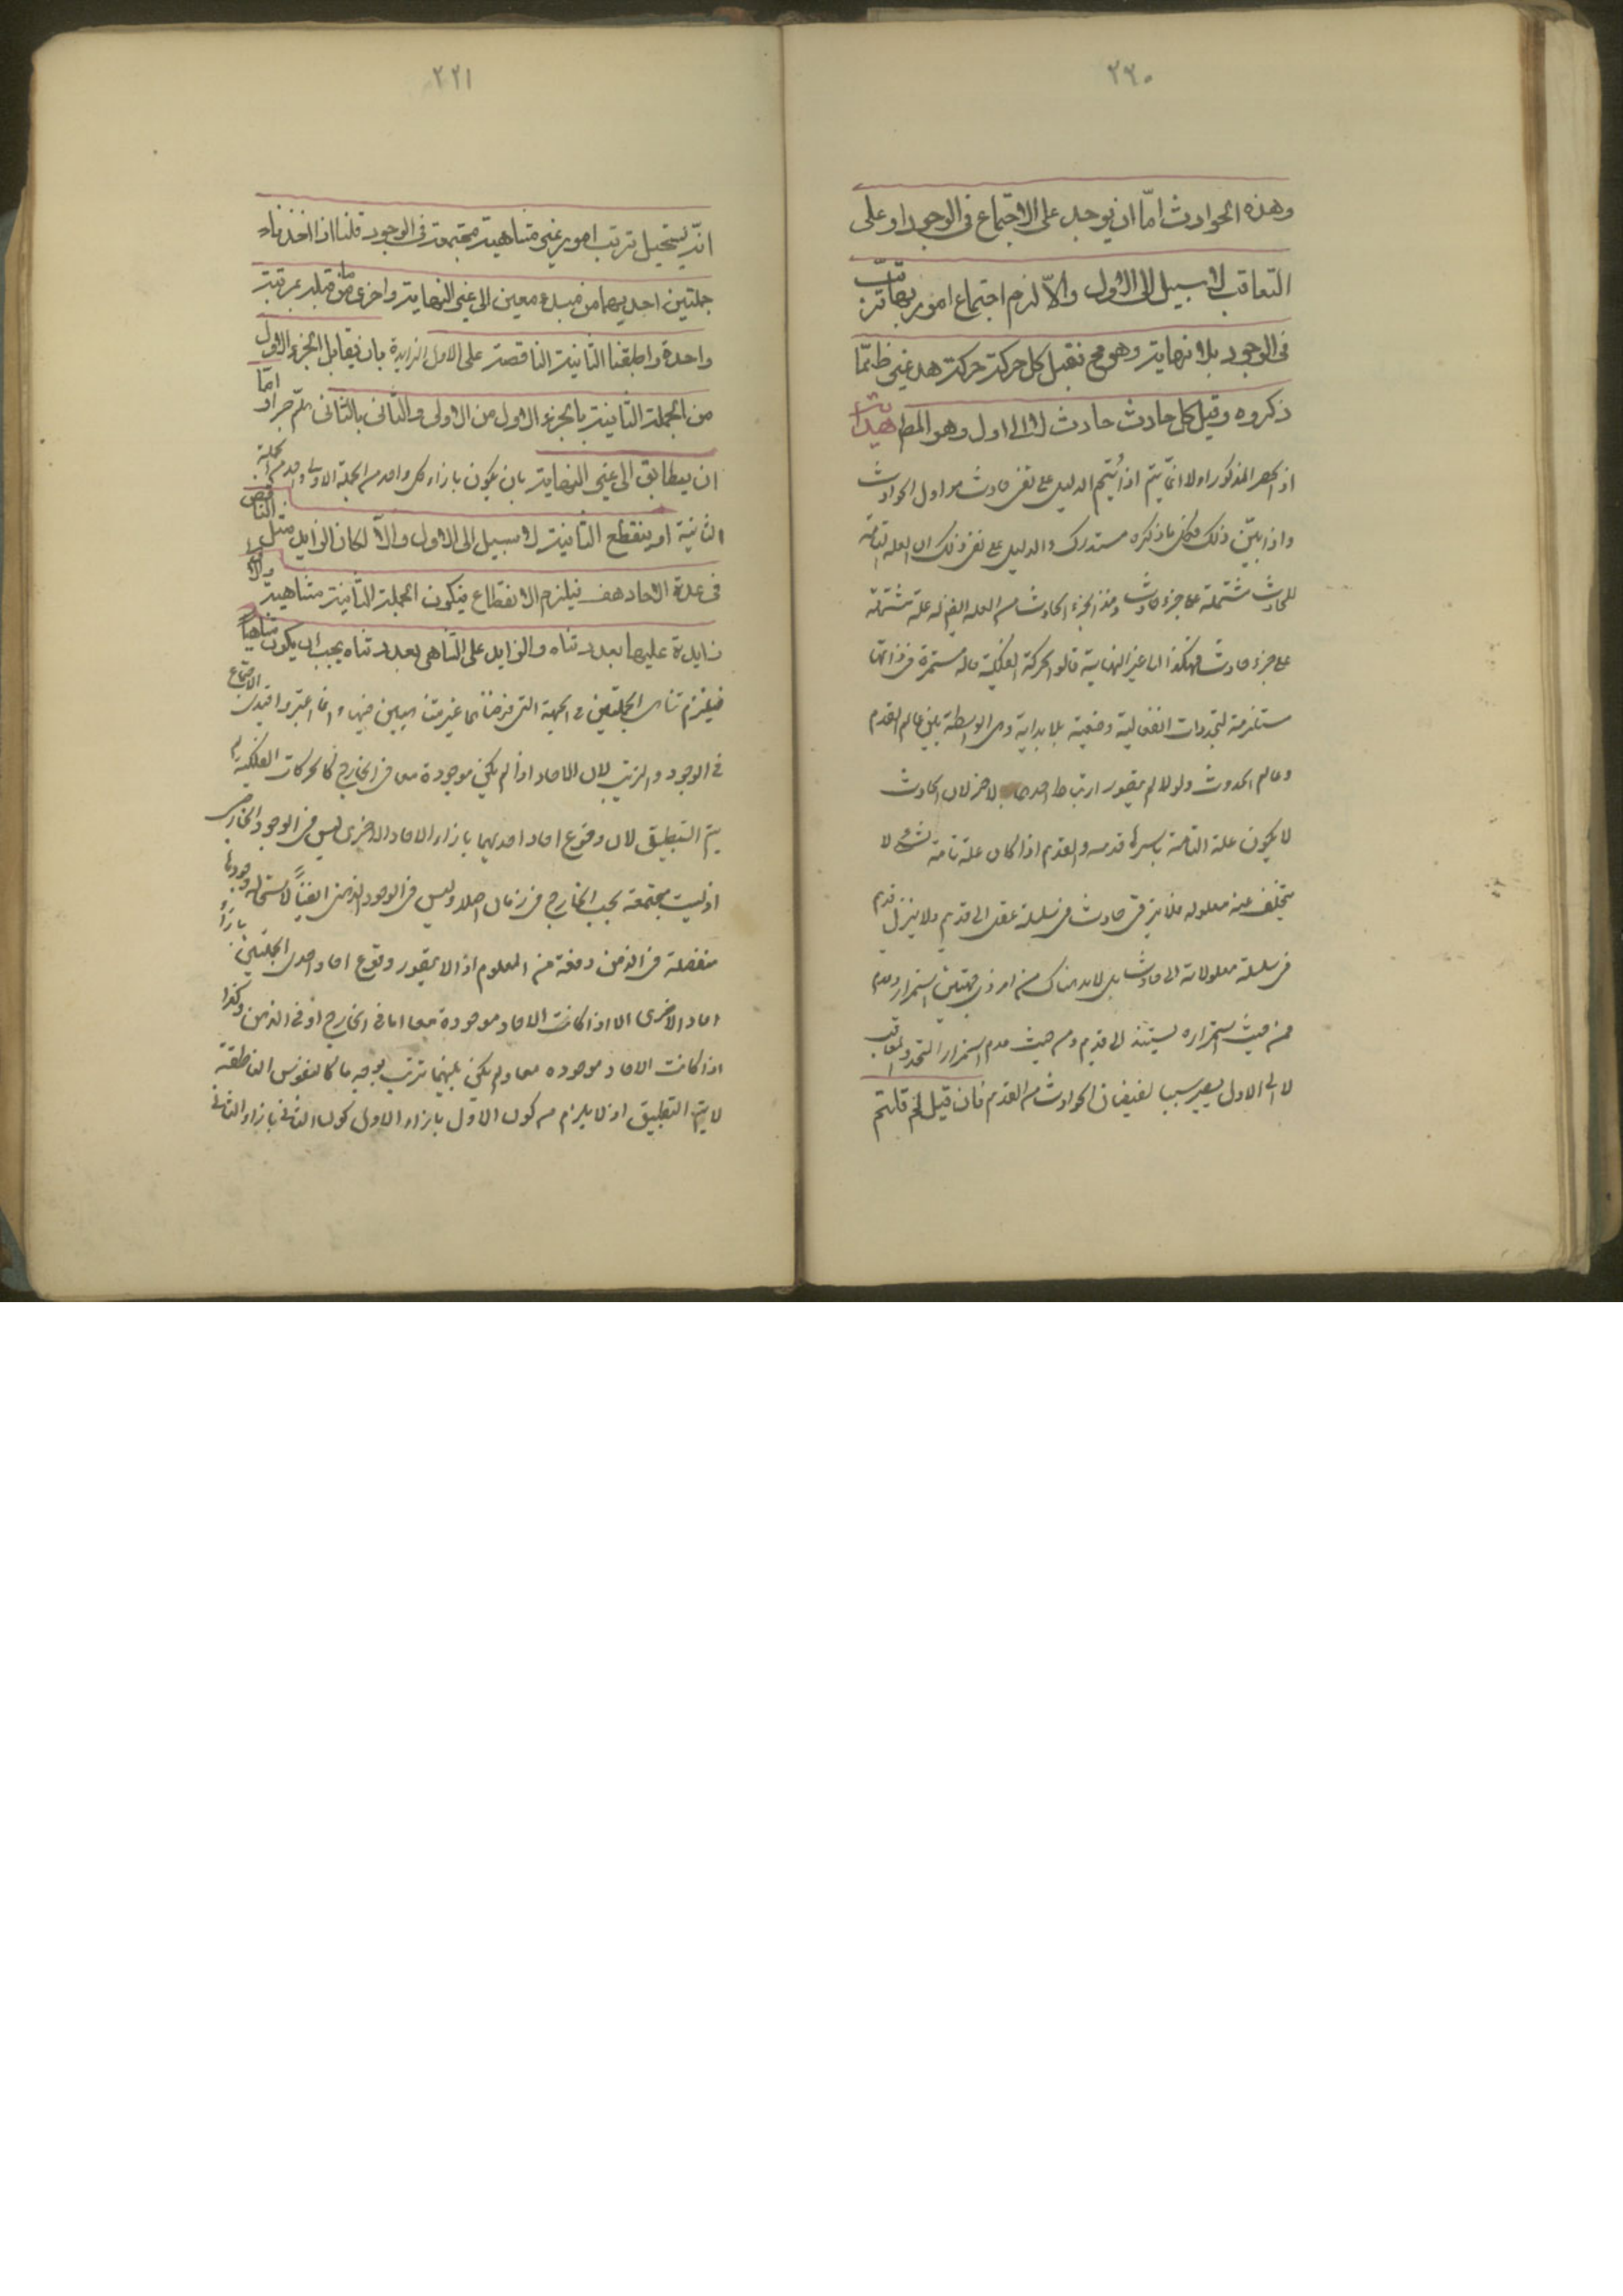 ٢٢٠
وهذه الحوادث امّا ان يوجد على الاجتماع فى الوجود او على
التعاقب لا سبيل الى الاول والّا لزم اجتماع امور لها ترتّب
فى الوجود بلا نهاية وهو مح فقبل كل حركة حركة هذا غير ظ ممّا
ذكروه وقبل كل حادث حادث لا الى اول وهو المط هداية
اذ الحصر المذكور اولا انما يتم اذا تمّ الدليل على نفى حادث هو اول الحوادث
واذا بيّن ذلك فكل ما ذكره مستدرك والدليل على نفى ذلك ان العلة التامة
للحادث مشتملة على جزء حادث وهذا الجزء الحادث من العلة ايضا له علة مشتملة
على جزء حادث فهكذا الى غير النهاية قالوا الحركة الفلكية حالة مستمرة فى ذاتها
مستلزمة لتجددات انتقالية وضعية بلا بداية وهى الواسطة بين عالم القدم
وعالم الحدوث ولولا لم يتصور ارتباط احدهما بالاخر لان الحادث
لا يكون علة التامة باسرها قديمة والقديم اذا كان علة تامة لشئ لا
يتخلف عنه معلوله فلا يترقى حادث فى سلسلة علله الى قديم ولا ينزل قديم
فى سلسلة معلولاته الى حادث بل لابد هناك من امر ذى جهتين استمرار وعدم
فمن حيث استمراره يستند الى قديم ومن حيث عدم استمرار التجدد والتعاقب
لا الى الاول يصير سببا لفيضان الحوادث من القديم فان قيل لم قلتم
٢٢١
انّه يستحيل ترتب امور غير متناهية مجتمعة فى الوجود قلنا اذا اخذنا
جملتين احديهما من مبدء معين الى غير النهاية واخرى مما قبله بمرتبة
واحدة واطبقنا الثانية الناقصة على الاول الزايدة بان يقابل الجزء الاول
من الجملة الثانية بالجزء الاول من الاولى والثانى بالثانى هلم جرا فاما
ان يتطابق الى غير النهاية بان يكون بازاء كل واحد من الجملة الاولى واحد من الجملة
الثانية او ينقطع الثانية لا سبيل الى الاول والّا لكان الزايد مثل الناقص
فى عدة الاحاد هف فيلزم الانقطاع فيكون الجملة الثانية متناهية والاولى
زايدة عليها بعدد متناه والزايد على المتناهى بعدد متناه يجب ان يكون متناهيا
فيلزم تناهى الجملتين فى الجهة التى فرضناهما غير متناهيين فيها وانما اعتبروا قيدى الاجتماع
فى الوجود والترتب لان الاحاد اذا لم يكن موجودة معا فى الخارج كالحركات الفلكية لم
يتم التطبيق لان وقوع احاد احديهما بازاء الاحاد الاخرى ليس فى الوجود الخارجى
اذ ليست مجتمعة بحسب الخارج فى زمان اصلا وليس فى الوجود الذهنى ايضاً لاستحالة وجودها
مفصلة فى الذهن دفعة من المعلوم اذ لا يتصور وقوع احاد احدى الجملتين بازاء
احاد الاخرى الا اذا كانت الاحاد موجودة معا اما فى الخارج او فى الذهن وكذا
اذا كانت الاحاد موجوده معا ولم يكن بينهما ترتب بوجه ما كالنفوس الناطقة
لا يتم التطبيق اذ لا يلزم من كون الاول بازاء الاول كون الثانى بازاء الثانى